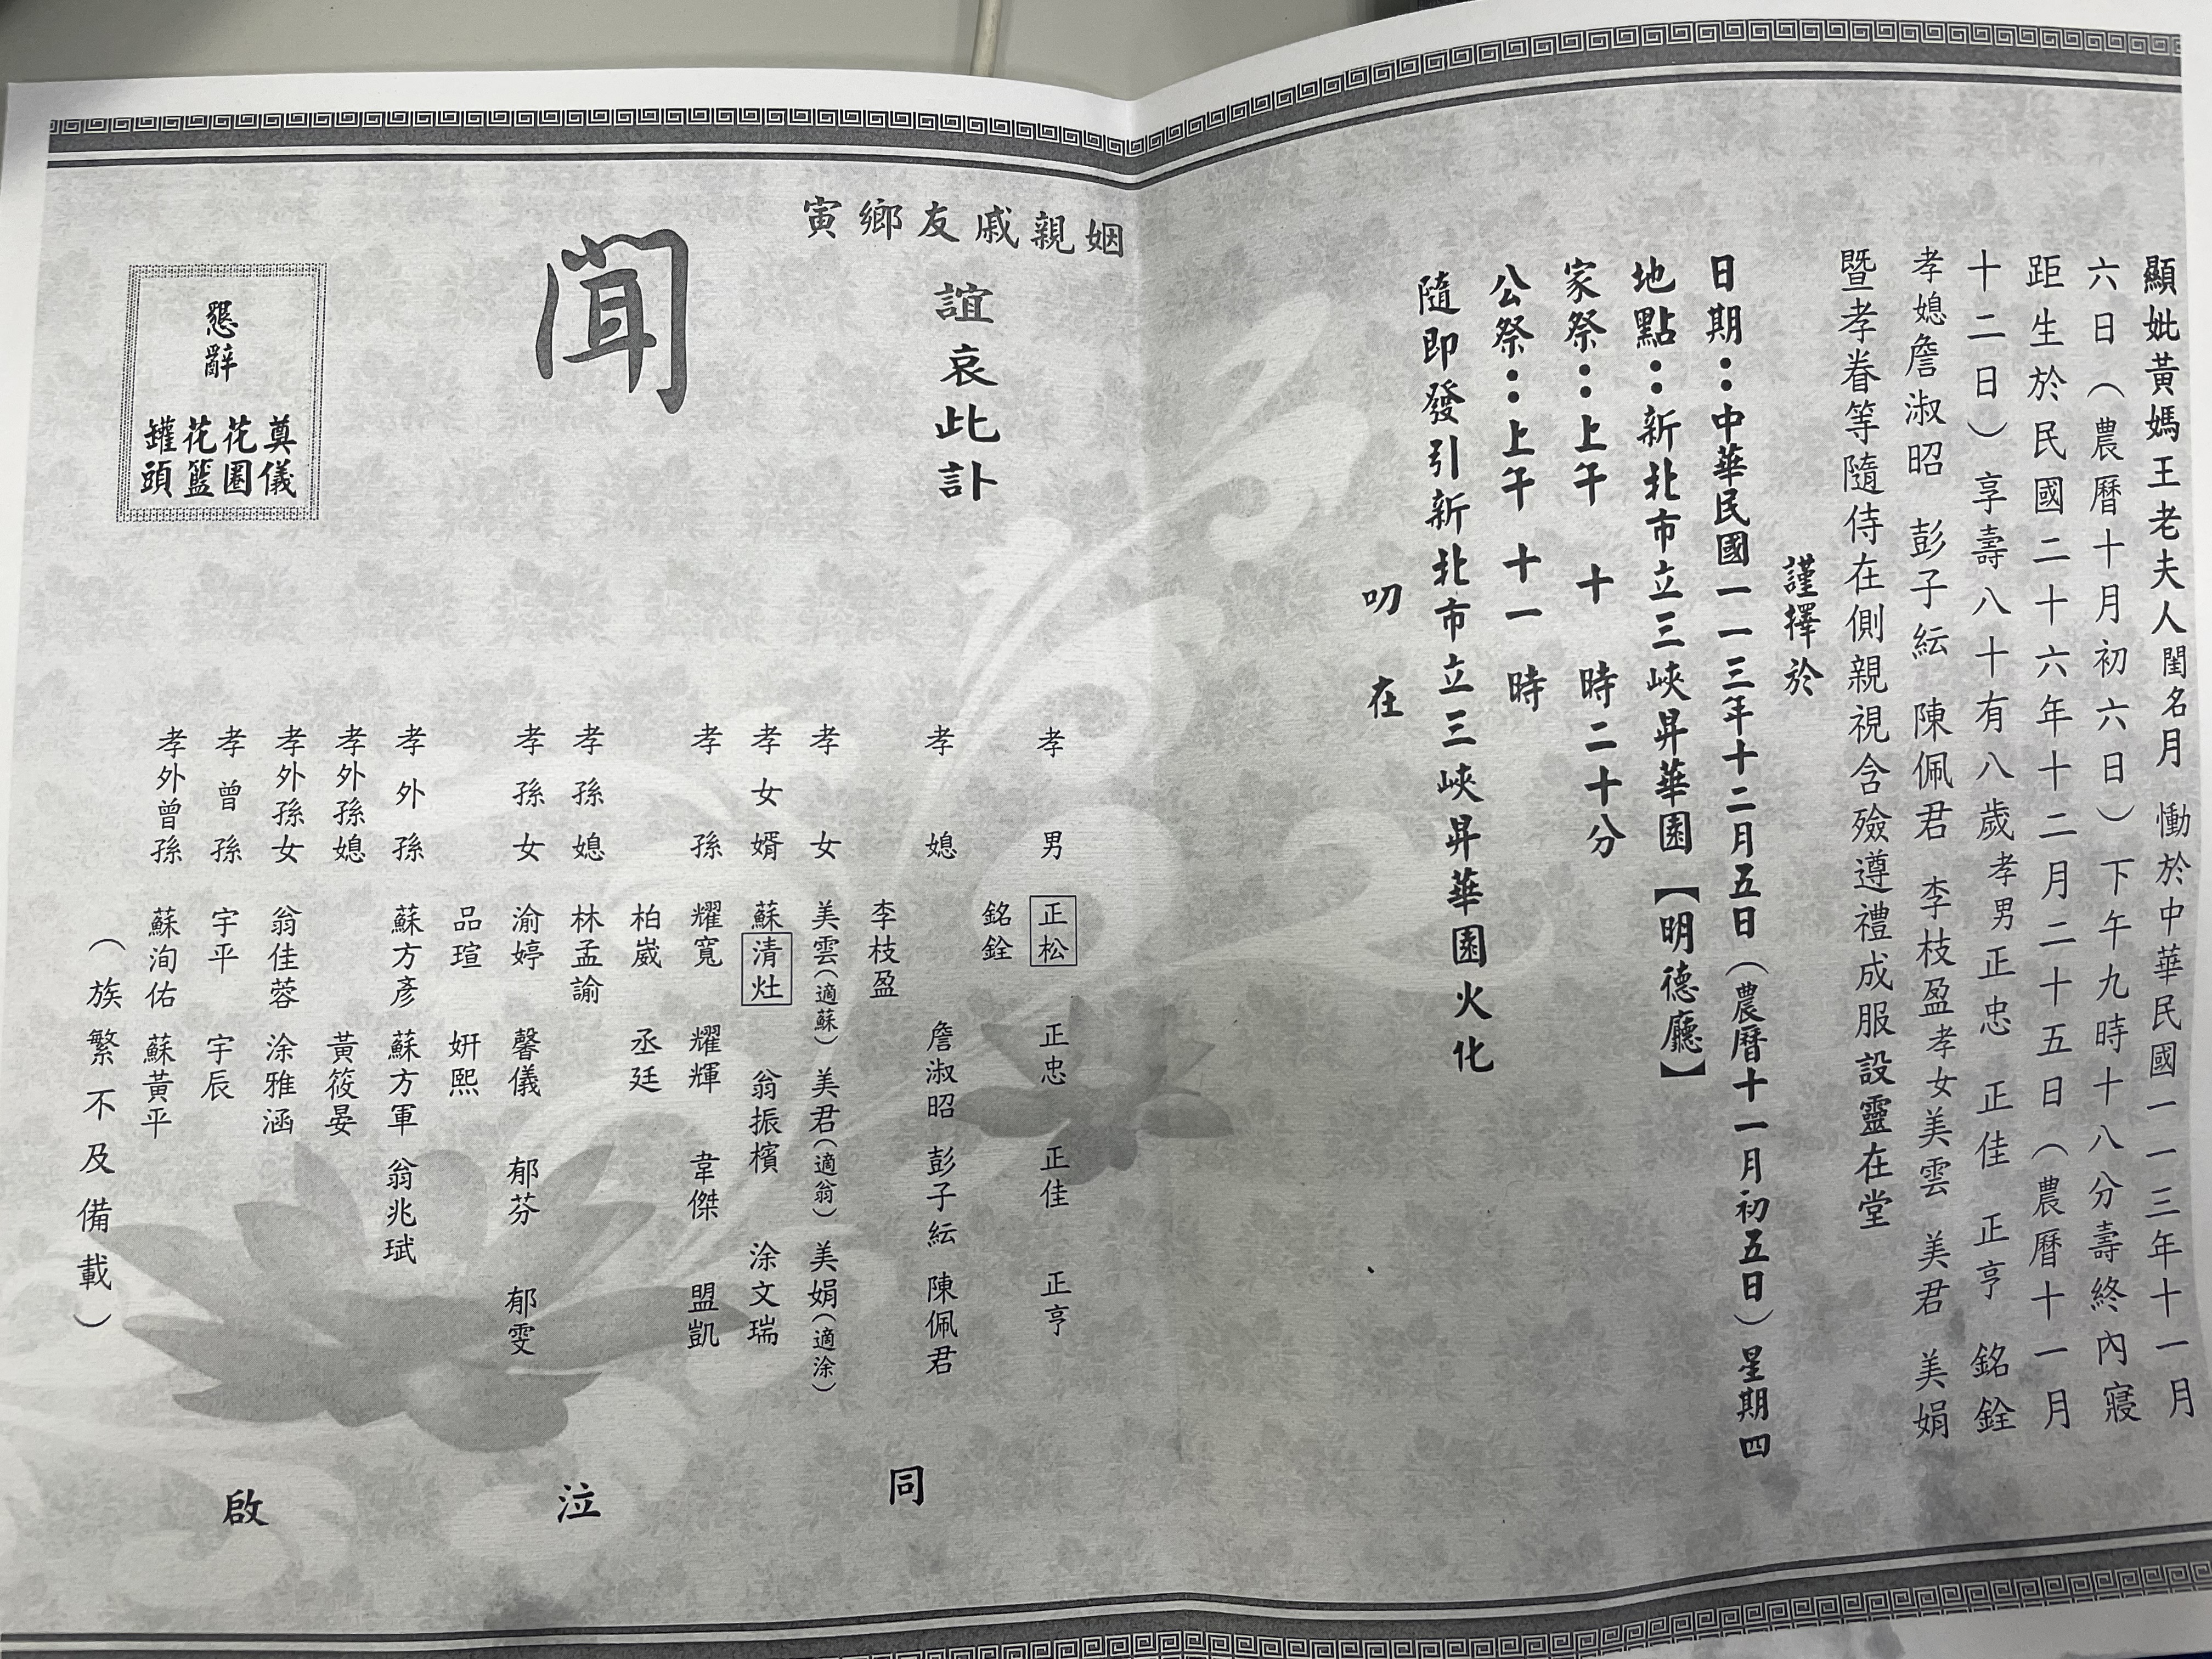 顯妣黃媽王老夫人閨名月　慟於中華民國一一三年十一月
六日（農曆十月初六日）下午九時十八分壽終內寢
距生於民國二十六年十二月二十五日（農曆十一月
十二日）享壽八十有八歲孝男正忠　正佳　正亨　銘銓
孝媳詹淑昭　彭子紜　陳佩君　李枝盈孝女美雲　美君　美娟
暨孝眷等隨侍在側親視含殮遵禮成服設靈在堂
謹擇於
日期：中華民國一一三年十二月五日（農曆十一月初五日）星期四
地點：新北市立三峽昇華園【明德廳】
家祭：上午　十　時二十分
公祭：上午　十一　時
隨即發引新北市立三峽昇華園火化
叨　在
姻親戚友鄉寅
誼哀此訃
聞
懇辭
奠儀
花圈
花籃
罐頭
孝男　正松　正忠　正佳　正亨
銘銓
孝媳　詹淑昭　彭子紜　陳佩君
李枝盈
孝女　美雲（適蘇）　美君（適翁）　美娟（適涂）
孝女婿　蘇清灶　翁振檳　涂文瑞
孝孫　耀寬　耀輝　韋傑　盟凱
柏崴　丞廷
孝孫媳　林孟諭
孝孫女　渝婷　馨儀　郁芬　郁雯
品瑄　妍熙
孝外孫　蘇方彥　蘇方軍　翁兆珷
孝外孫媳　黃筱晏
孝外孫女　翁佳蓉　涂雅涵
孝曾孫　宇平　宇辰
孝外曾孫　蘇洵佑　蘇黃平
（族繁不及備載）
同　泣　啟